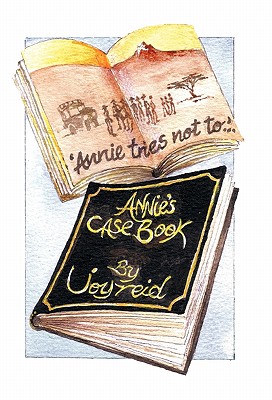 'Annie tries not to...'
ANNIE'S
CASE BOOK
By
Joyreid